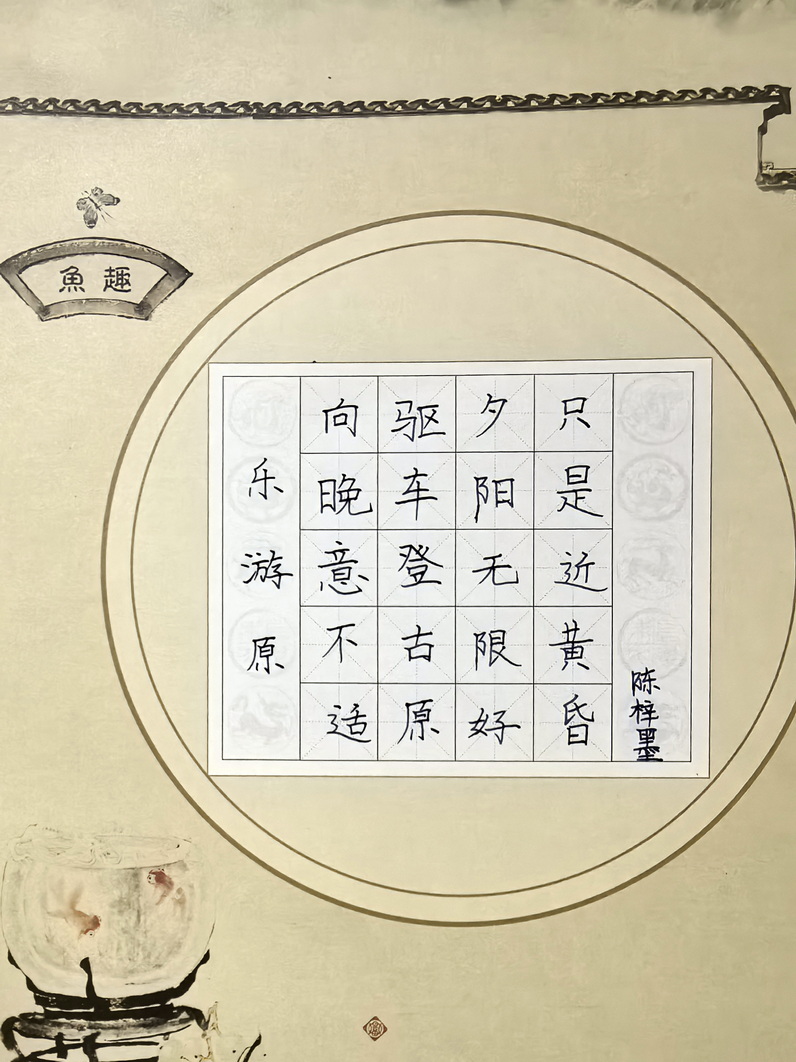 魚趣
乐游原
向晚意不适
驱车登古原
夕阳无限好
只是近黄昏
陈梓墨